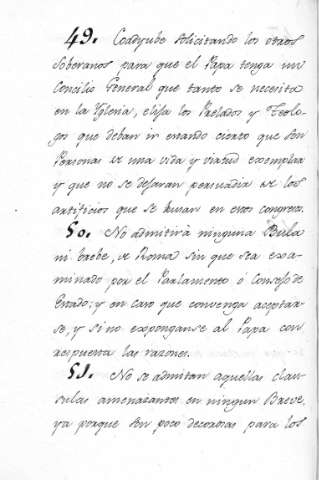 49. Coadyube solicitando los otros
Soberanos para que el Papa tenga un
Concilio General que tanto se necesita
en la Yglesia, elija los Prelados y Teolo-
gos que deban ir estando cierto que son
Personas de una vida y virtud exemplar
y que no se dejaran persuadir de los
artificios que se husan en estos congresos.
50. No admitirà ninguna Bula
ni brebe, de Roma sin que sea exa-
minado por el Parlamento ó Consejo de
Estado; y en caso que convenga aceptar-
se, y si no exponganse al Papa con
respuesta las razones.
51. No se admitan aquellas clau-
sulas amenazantes en ningun Breve,
ya porque son poco decorosas para los